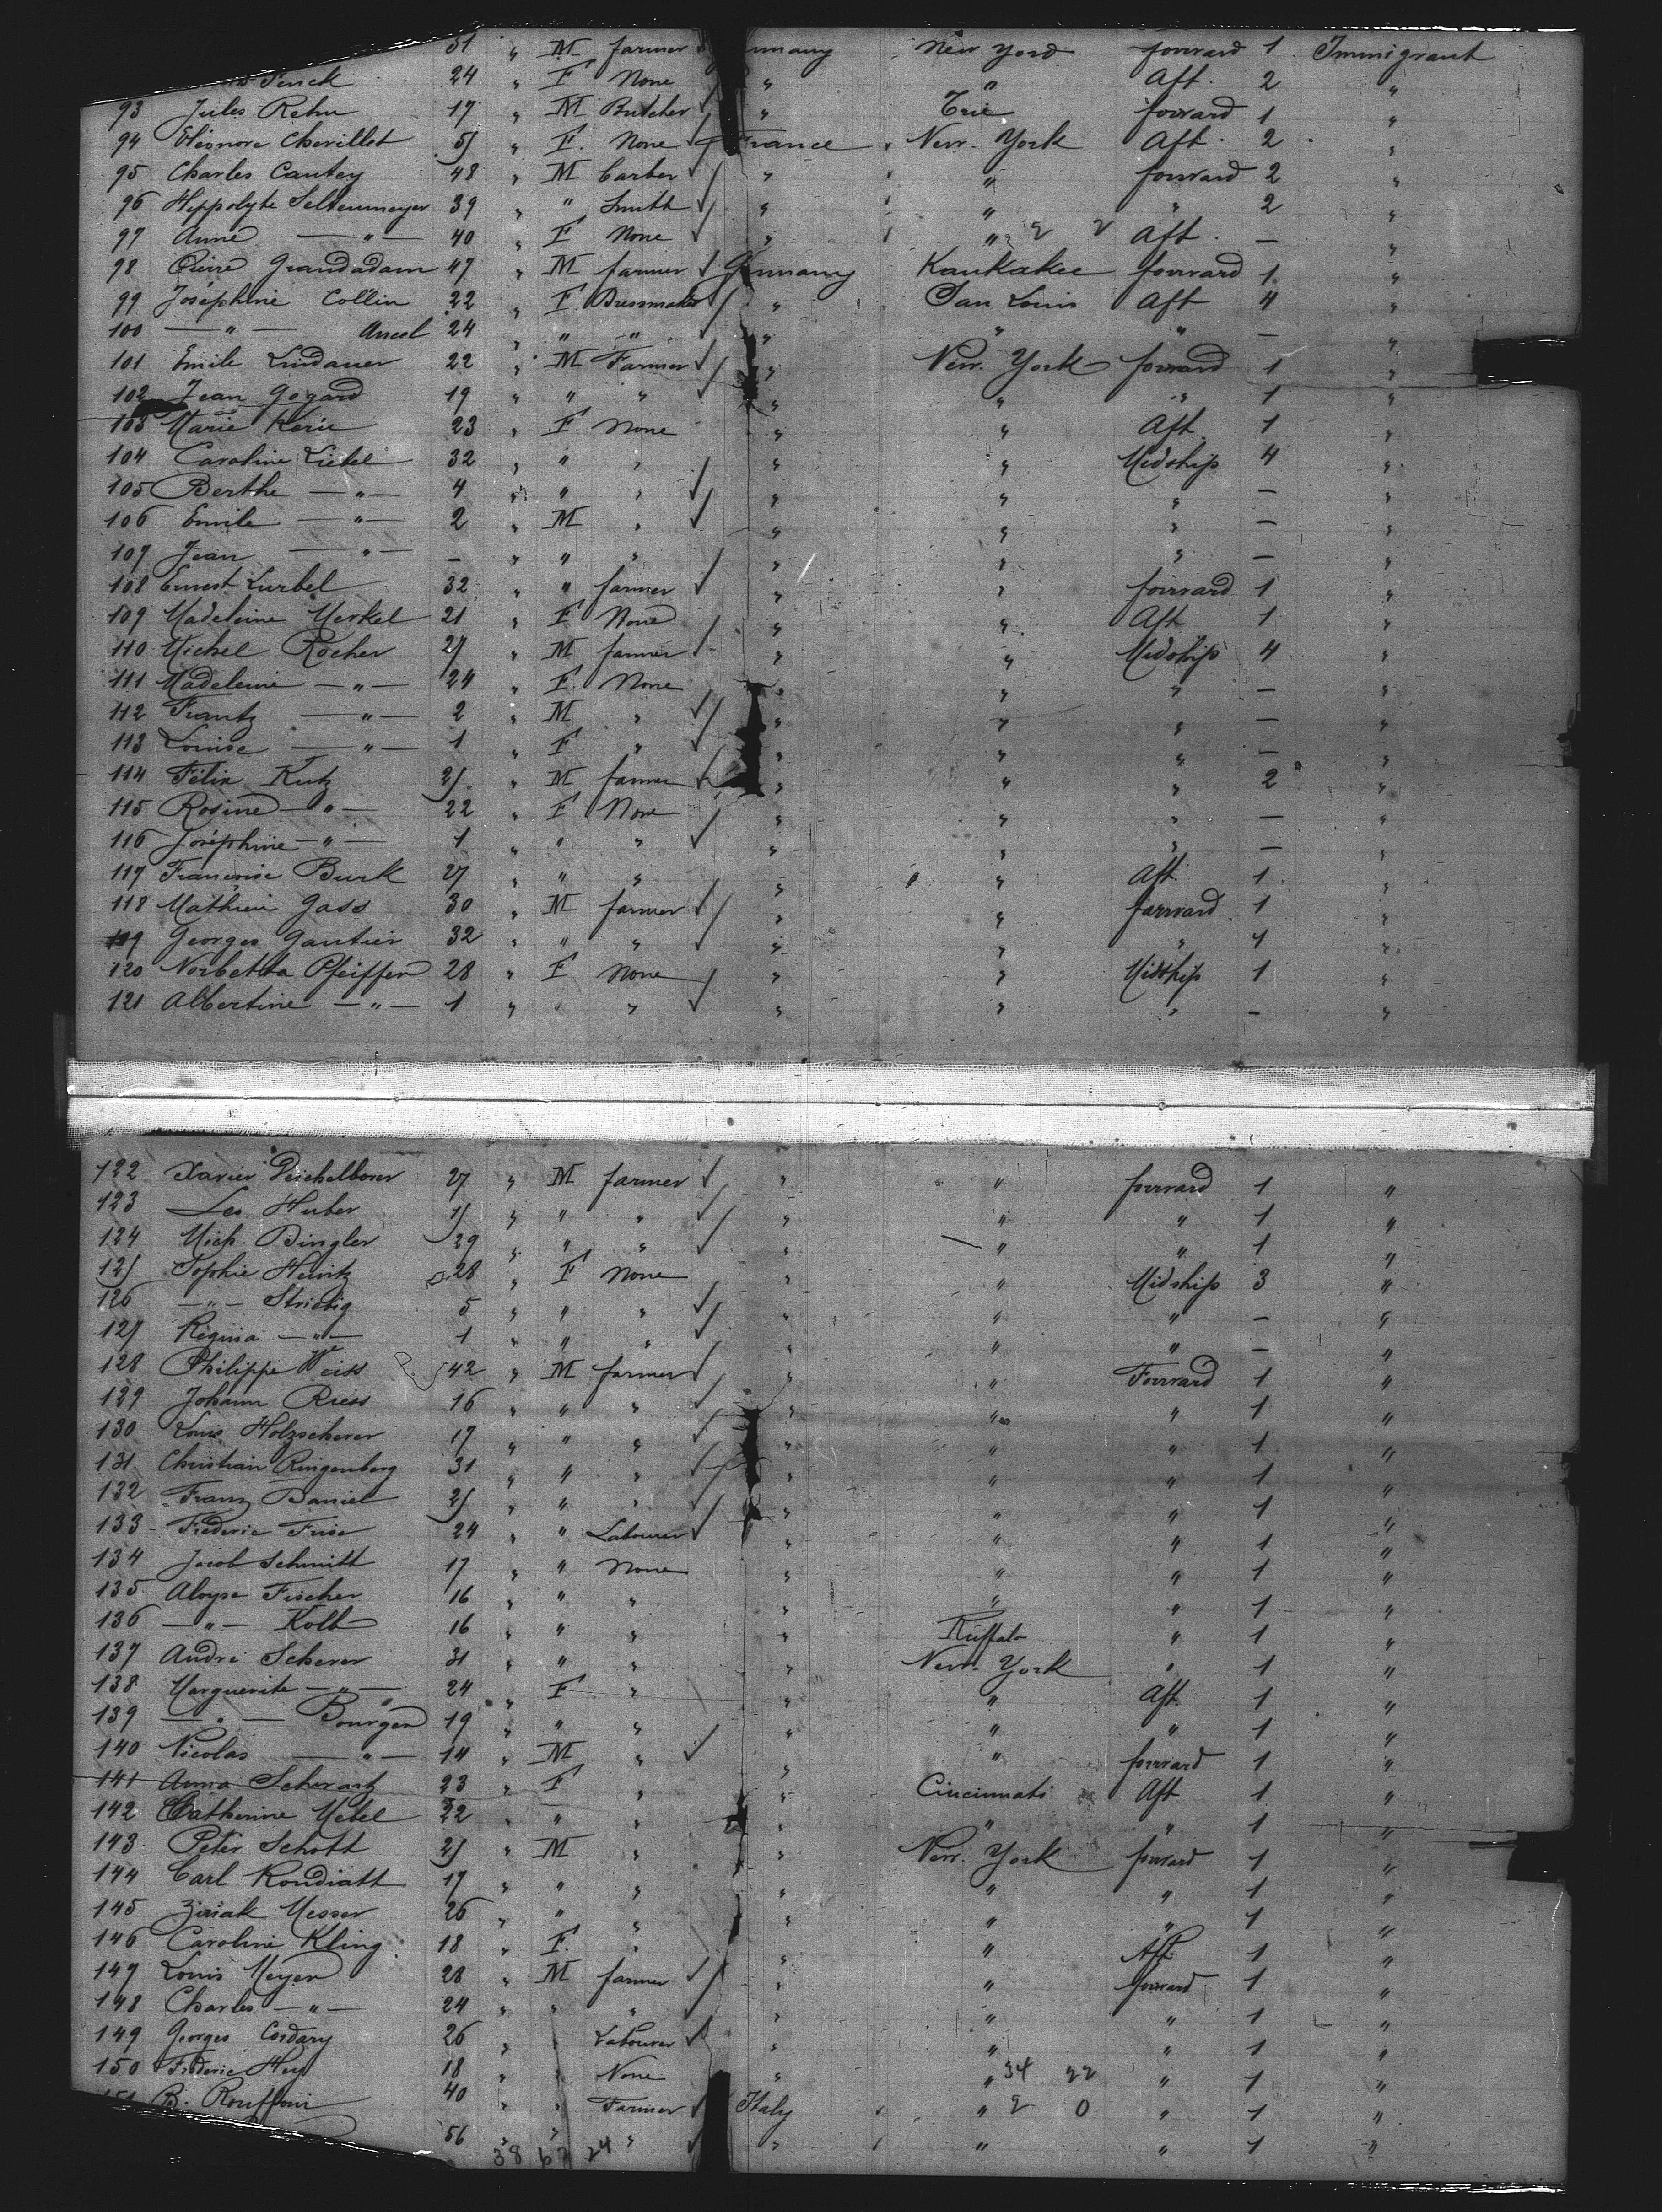 31 " M farmer many New York forward 1 Immigrant
24 " F None " " Aft. 2 "
93 Jules Rehn 17 " M Butcher " Erie forward 1 "
94 Eléonore Chevillet 51 " F. None France New-York Aft. 2 "
95 Charles Cautey 48 " M Carter " " forward 2 "
96 Hippolyte Seltenmeyer 39 " " Smith " " " 2 "
97 Anne — " — 40 " F None " " 2 2 Aft. — "
98 Pierre Grandadam 47 " M farmer Germany Kankakee forward 1 "
99 Joséphine Collin 22 " F. Dressmaker " San Louis Aft 4 "
100 — " — Ancel 24 " " " " " " — "
101 Emile Lindauer 22 " M Farmer " New-York forward 1 "
102 Jean Gogard 19 " " " " " " 1 "
103 Marie 23 " F None " " Aft. 1 "
104 Caroline Liebel 32 " " " " " Midship 4 "
105 Berthe — " — 4 " " " " " " — "
106 Emile — " — 2 " M " " " " — "
107 Jean — " — — " " " " " " — "
108 Ernest Lurbel 32 " " farmer " " forward 1 "
109 Madeleine Merkel 21 " F None " " Aft 1 "
110 Michel Rocher 27 " M farmer " " Midship 4 "
111 Madeleine — " — 24 " F. None " " " — "
112 Frantz — " — 2 " M " " " " — "
113 Louise — " — 1 " F " " " " — "
114 Félix Kutz 25 " M farmer " " " 2 "
115 Rosine — " — 22 " F None " " " — "
116 Joséphine — " — 1 " " " " " " — "
117 Françoise Burk 27 " " " " " Aft 1 "
118 Mathieu Gass 30 " M farmer " " farward 1 "
119 Georges Gautier 32 " " " " " " 1 "
120 Norbetta Pfeiffer 28 " F None " " Midship 1 "
121 Albertine — " — 1 " " " " " " — "
122 Xavier Deichelborer 27 " M farmer " " forward 1 "
123 Leo Huber 15 " " " " " " 1 "
124 Mich. Dingler 29 " " " " " " 1 "
125 Sophie Heintz 28 " F None " " Midship 3 "
126 — " — Striebig 5 " " " " " " — "
127 Régina — " — 1 " " " " " " — "
128 Philippe Weiss 42 " M farmer " " Forward 1 "
129 Johann Riess 16 " " " " " " 1 "
130 Louis Holzscherer 17 " " " " " " 1 "
131 Christian Ringenberg 31 " " " " " " 1 "
132 Franz Daniel 25 " " " " " " 1 "
133 Frederic 24 " " Labourer " " " 1 "
134 Jacob Schmitt 17 " " None " " " 1 "
135 Aloyse Fischer 16 " " " " " " 1 "
136 — " — Kolb 16 " " " " Buffalo " 1 "
137 André Scherer 31 " " " " New-York " 1 "
138 Marguerite — " — 24 " F " " " Aft 1 "
139 — " — Bourger 19 " " " " " " 1 "
140 Nicolas — " — 14 " M " " " forward 1 "
141 Anna Schwartz 23 " F " " Cincinnati Aft 1 "
142 Catherine Mebel 22 " " " " " " 1 "
143 Peter Schott 25 " M " " New-York forward 1 "
144 Carl Kondiatt 17 " " " " " " 1 "
145 Ziriak Messer 26 " " " " " " 1 "
146 Caroline Kling 18 " F. " " " Aft. 1 "
147 Louis Meyer 28 " M farmer " " forward 1 "
148 Charles — " — 24 " " " " " " 1 "
149 Georges Cordary 26 " " Labourer " " " 1 "
150 Frederic Hey 18 " " None " " 34 22 " 1 "
151 B. Rouffoni 40 " " Farmer Italy " 2 0 " 1 "
56 " " " " " " 1 "
38 62 24